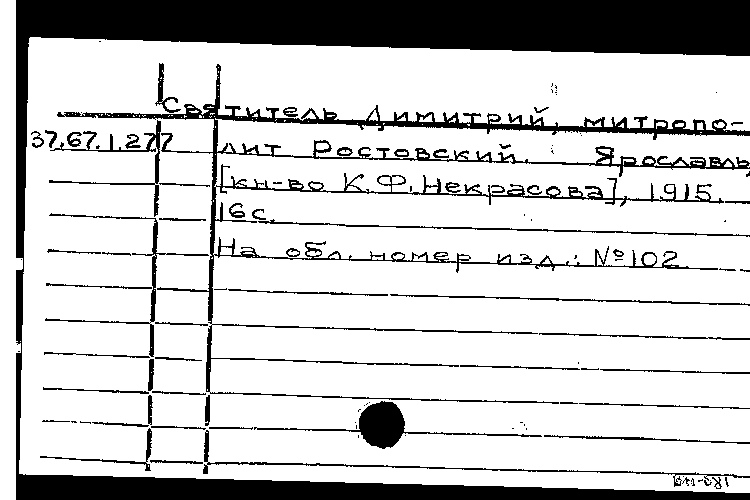 Святитель Димитрий, митропо-
37.67.1.277 лит Ростовский. Ярославль,
[кн-во К.Ф.Некрасова], 1915.
16с.
На обл. номер изд.: №102